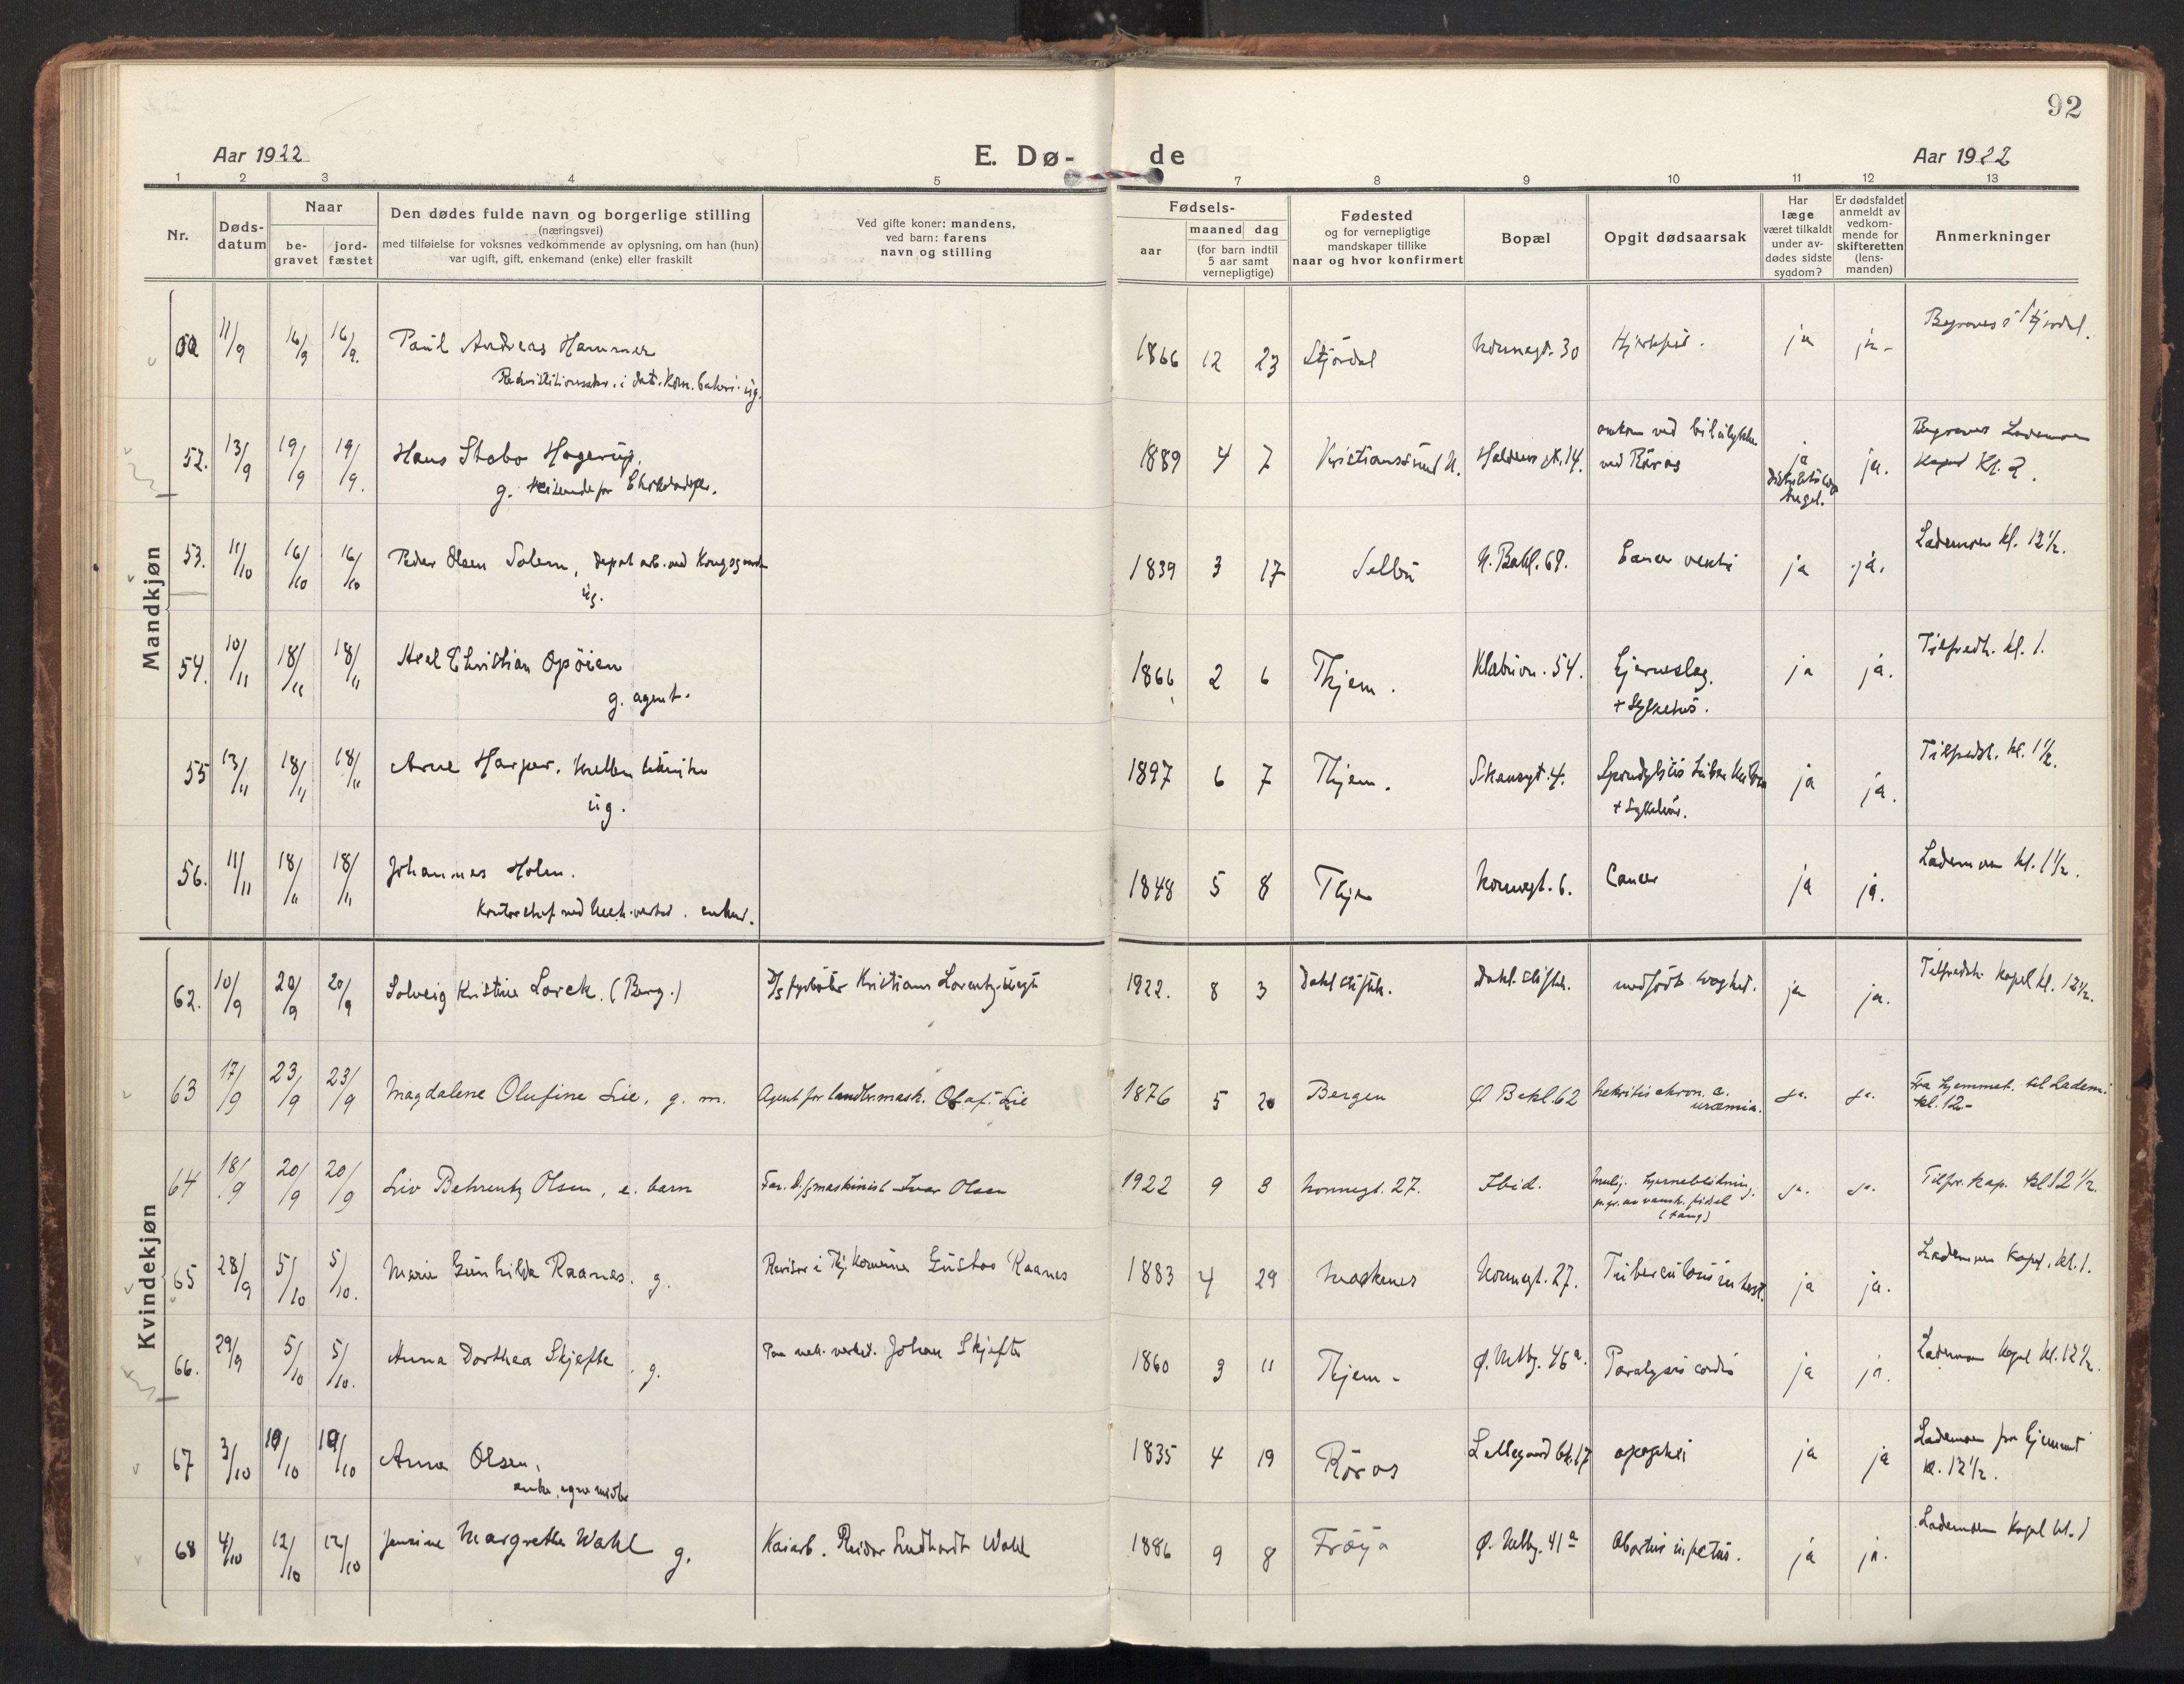 92
Aar 1922
E. Dø- de
Aar 1922
1 2 3 4 5 7 8 9 10 11 12 13
Nr.
Døds-
datum
Naar
be-
gravet
jord-
fæstet
Den dødes fulde navn og borgerlige stilling
(næringsvei)
med tilføielse for voksnes vedkommende av oplysning, om han (hun)
var ugift, gift, enkemand (enke) eller fraskilt
Ved gifte koner: mandens,
ved barn: farens
navn og stilling
Fødsels-
aar
maaned dag
(for barn indtil
5 aar samt
vernepligtige)
Fødested
og for vernepligtige
mandskaper tillike
naar og hvor konfirmert
Bopæl
Opgit dødsaarsak
Har
læge
været tilkaldt
under av-
dødes sidste
sygdom?
Er dødsfaldet
anmeldt av
vedkom-
mende for
skifteretten
(lens-
manden)
Anmerkninger
Mandkjøn
11/9 16/9 16/9. Paul Andreas Hammer 1866 12 23 Stjördal Nonnegt. 30 ja ja. Begraves i Stjørdal.
ug.
52. 13/9 19/9 19/9. Hans Stabo Hagerup, 1889 4 7 Kristiansund N. 14. omkom ved bilulykke ved Röros ja ja. Begraves Lademoen Kapel Kl. 2.
g. Reisende for
53. 11/10 16/10 16/10 Peder Olsen Solem, depot arb. ved Kongsgaarden 1839 3 17 Selbu N. Bakl. 69. ja ja. Lademoen kl. 12½.
ug.
54. 10/11 18/11 18/11 Axel Christian Opöien 1866 2 6 Thjem. 54. Hjerneslag. ja ja. Tilfredsh. kl. 1.
g. agent.
+ Sykehus.
55 13/11 18/11 18/11 Arne Harper. 1897 6 7 Thjem. Skansegt. 4. ja ja. Tilfredsh. kl. 1½.
ug.
+ Sykehus.
56. 11/11 18/11 18/11 Johannes Holm. 1848 5 8 Thjem Nonnegt. 6. Cancer ja ja. Lademoen kl. 1½.
Kontorchef ved Mek. verksted. enkem.
Kvindekjøn
62. 10/9 20/9 20/9 Solveig Kristine Lorck. (Berg.) D/S fyrböter 1922. 8 3 Dahl stiftels. Dahl. stiftels. medfödt svaghed. ja ja. Tilfredsh. Kapel kl. 12½.
63 17/9 23/9 23/9 Magdalene Olufine Lie, g. m. Agent for landbr.mask. Olaf Lie 1876 5 20 Bergen Ø Bakl. 62 Nefritis chron. c. uræmia. ja. ja. Fra hjemmet. til Ladem. kl. 12-
64 18/9 20/9 20/9 Liv Behrentz Olsen, e. barn Far. D/S maskinist Ivar Olsen 1922 9 8 Nonnegt. 27. Ibid. Mulig. hjerneblödning p. gr. av vansk. födsel (tang) ja. ja. Tilfr. kap. kl 12½.
65 28/9 5/10 5/10. Marie Gunhilda Raanes. g. Revisor i Thj. Kommune Gustav Raanes 1883 4 29 Moskenes Nonnegt. 27. Tuberculosis ja ja. Lademoen Kapel. kl. 1.
66. 29/9 5/10 5/10. Anna Dorthea Skjefte. g. Johan Skjefte 1860 3 11 Thjem- Ø. Mellbg. 45ᵃ. Paralysis cordis ja ja. Lademoen Kapel kl. 12½.
67 3/10 10/10 10/10 Anna Olsen. 1835 4 19 Röros apoplexi ja ja Lademoen fra hjemmet kl. 12½.
enke, egne midler
68 4/10 12/10 12/10 Jensine Margrethe Wahl g. Kaiarb. Reidar Wahl 1886 9 8 Fröya Ø. Mellbg. 41ᵃ Abortus ja ja. Lademoen Kapel kl. 1